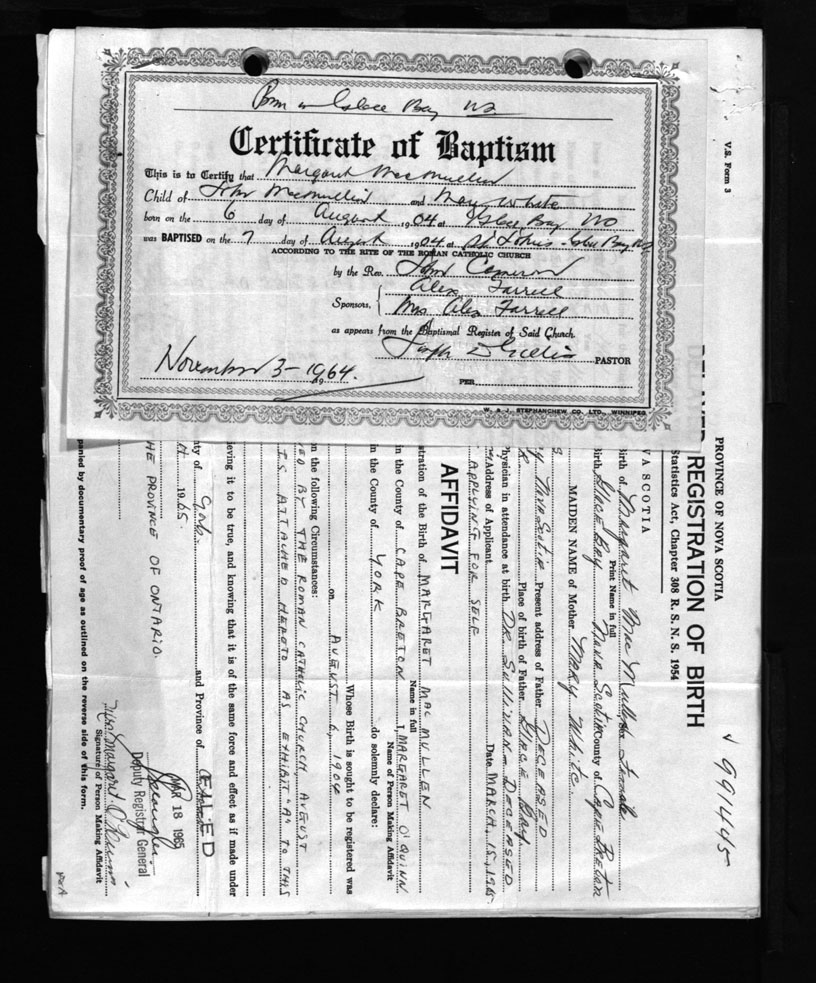 Born in Glace Bay NS
Certificate of Baptism
This is to Certify that Margaret MacMullin
Child of John MacMullin and Mary White
born on the 6 day of August 1904 at Glace Bay NS
was BAPTISED on the 7 day of August 1904 at St Johns - Glace Bay NS
ACCORDING TO THE RITE OF THE ROMAN CATHOLIC CHURCH
by the Rev. John Cameron
Sponsors, Alex Farrell
Mrs Alex Farrell
as appears from the Baptismal Register of Said Church.
Joseph PASTOR
November 3 - 1964. 19
PER
W. & J. STEPHANCHEW CO. LTD., WINNIPEG
V.S. Form 3
PROVINCE OF NOVA SCOTIA
DELAYED REGISTRATION OF BIRTH
991445
Statistics Act, Chapter 308 R. S. N. S. 1954
VA SCOTIA
Birth of Margaret Mac Mullen Female
Print Name in full
Birth Glace Bay Nova Scotia County of Cape Breton
MAIDEN NAME of Mother MARY White
Nova Scotia Present address of Father DECEASED
Place of birth of Father GLACE BAY
physician in attendance at birth DR. SULLIVAN - DECEASED
Address of Applicant Date MARCH, 15, 1965
APPLYING FOR SELF
AFFIDAVIT
stration of the Birth of MARGARET MAC MULLEN
Name in full
in the County of CAPE BRETON I, MARGARET O'QUINN
Name of Person Making Affidavit
in the County of YORK do solemnly declare:
Whose Birth is sought to be registered was
on AUGUST 6, 1904
on the following Circumstances:
ED BY THE ROMAN CATHOLIC CHURCH, AUGUST
IS ATTACHED HERETO AS EXHIBIT "A" TO THIS
ieving it to be true, and knowing that it is of the same force and effect as if made under
nty of York and Province of
H 1965.
FILED
MAR 18 1965
Deputy Registrar General
HE PROVINCE OF ONTARIO.
Mrs. Margaret O'Quinn
Signature of Person Making Affidavit
panied by documentary proof of age as outlined on the reverse side of this form.